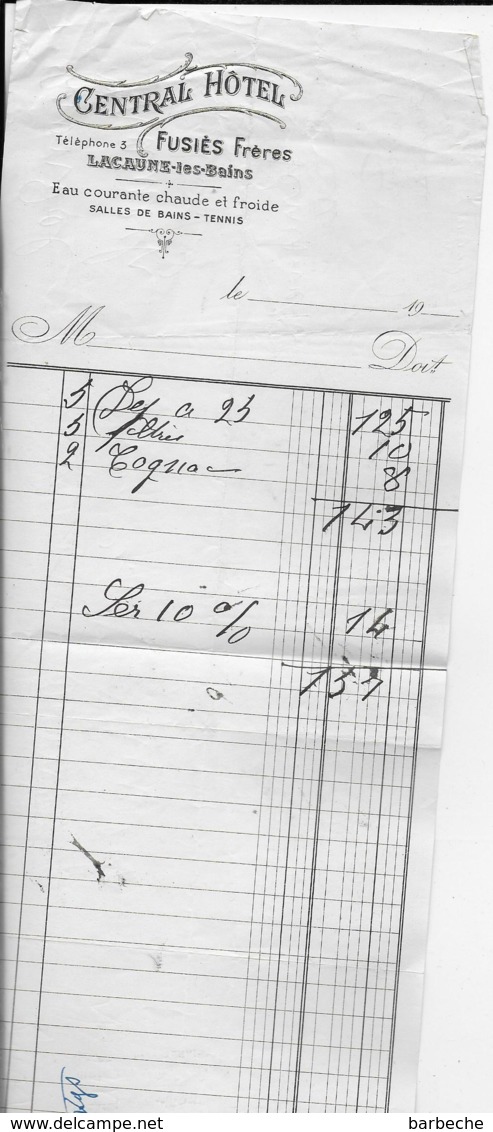 CENTRAL HÔTEL
Téléphone 3 FUSIÈS Frères
LACAUNE-les-Bains
Eau courante chaude et froide
SALLES DE BAINS - TENNIS
le 19
M Doit
5 Dej a 25 125
5 filtres 10
2 Cognac 8
143
Ser 10 % 14
157
barbeche